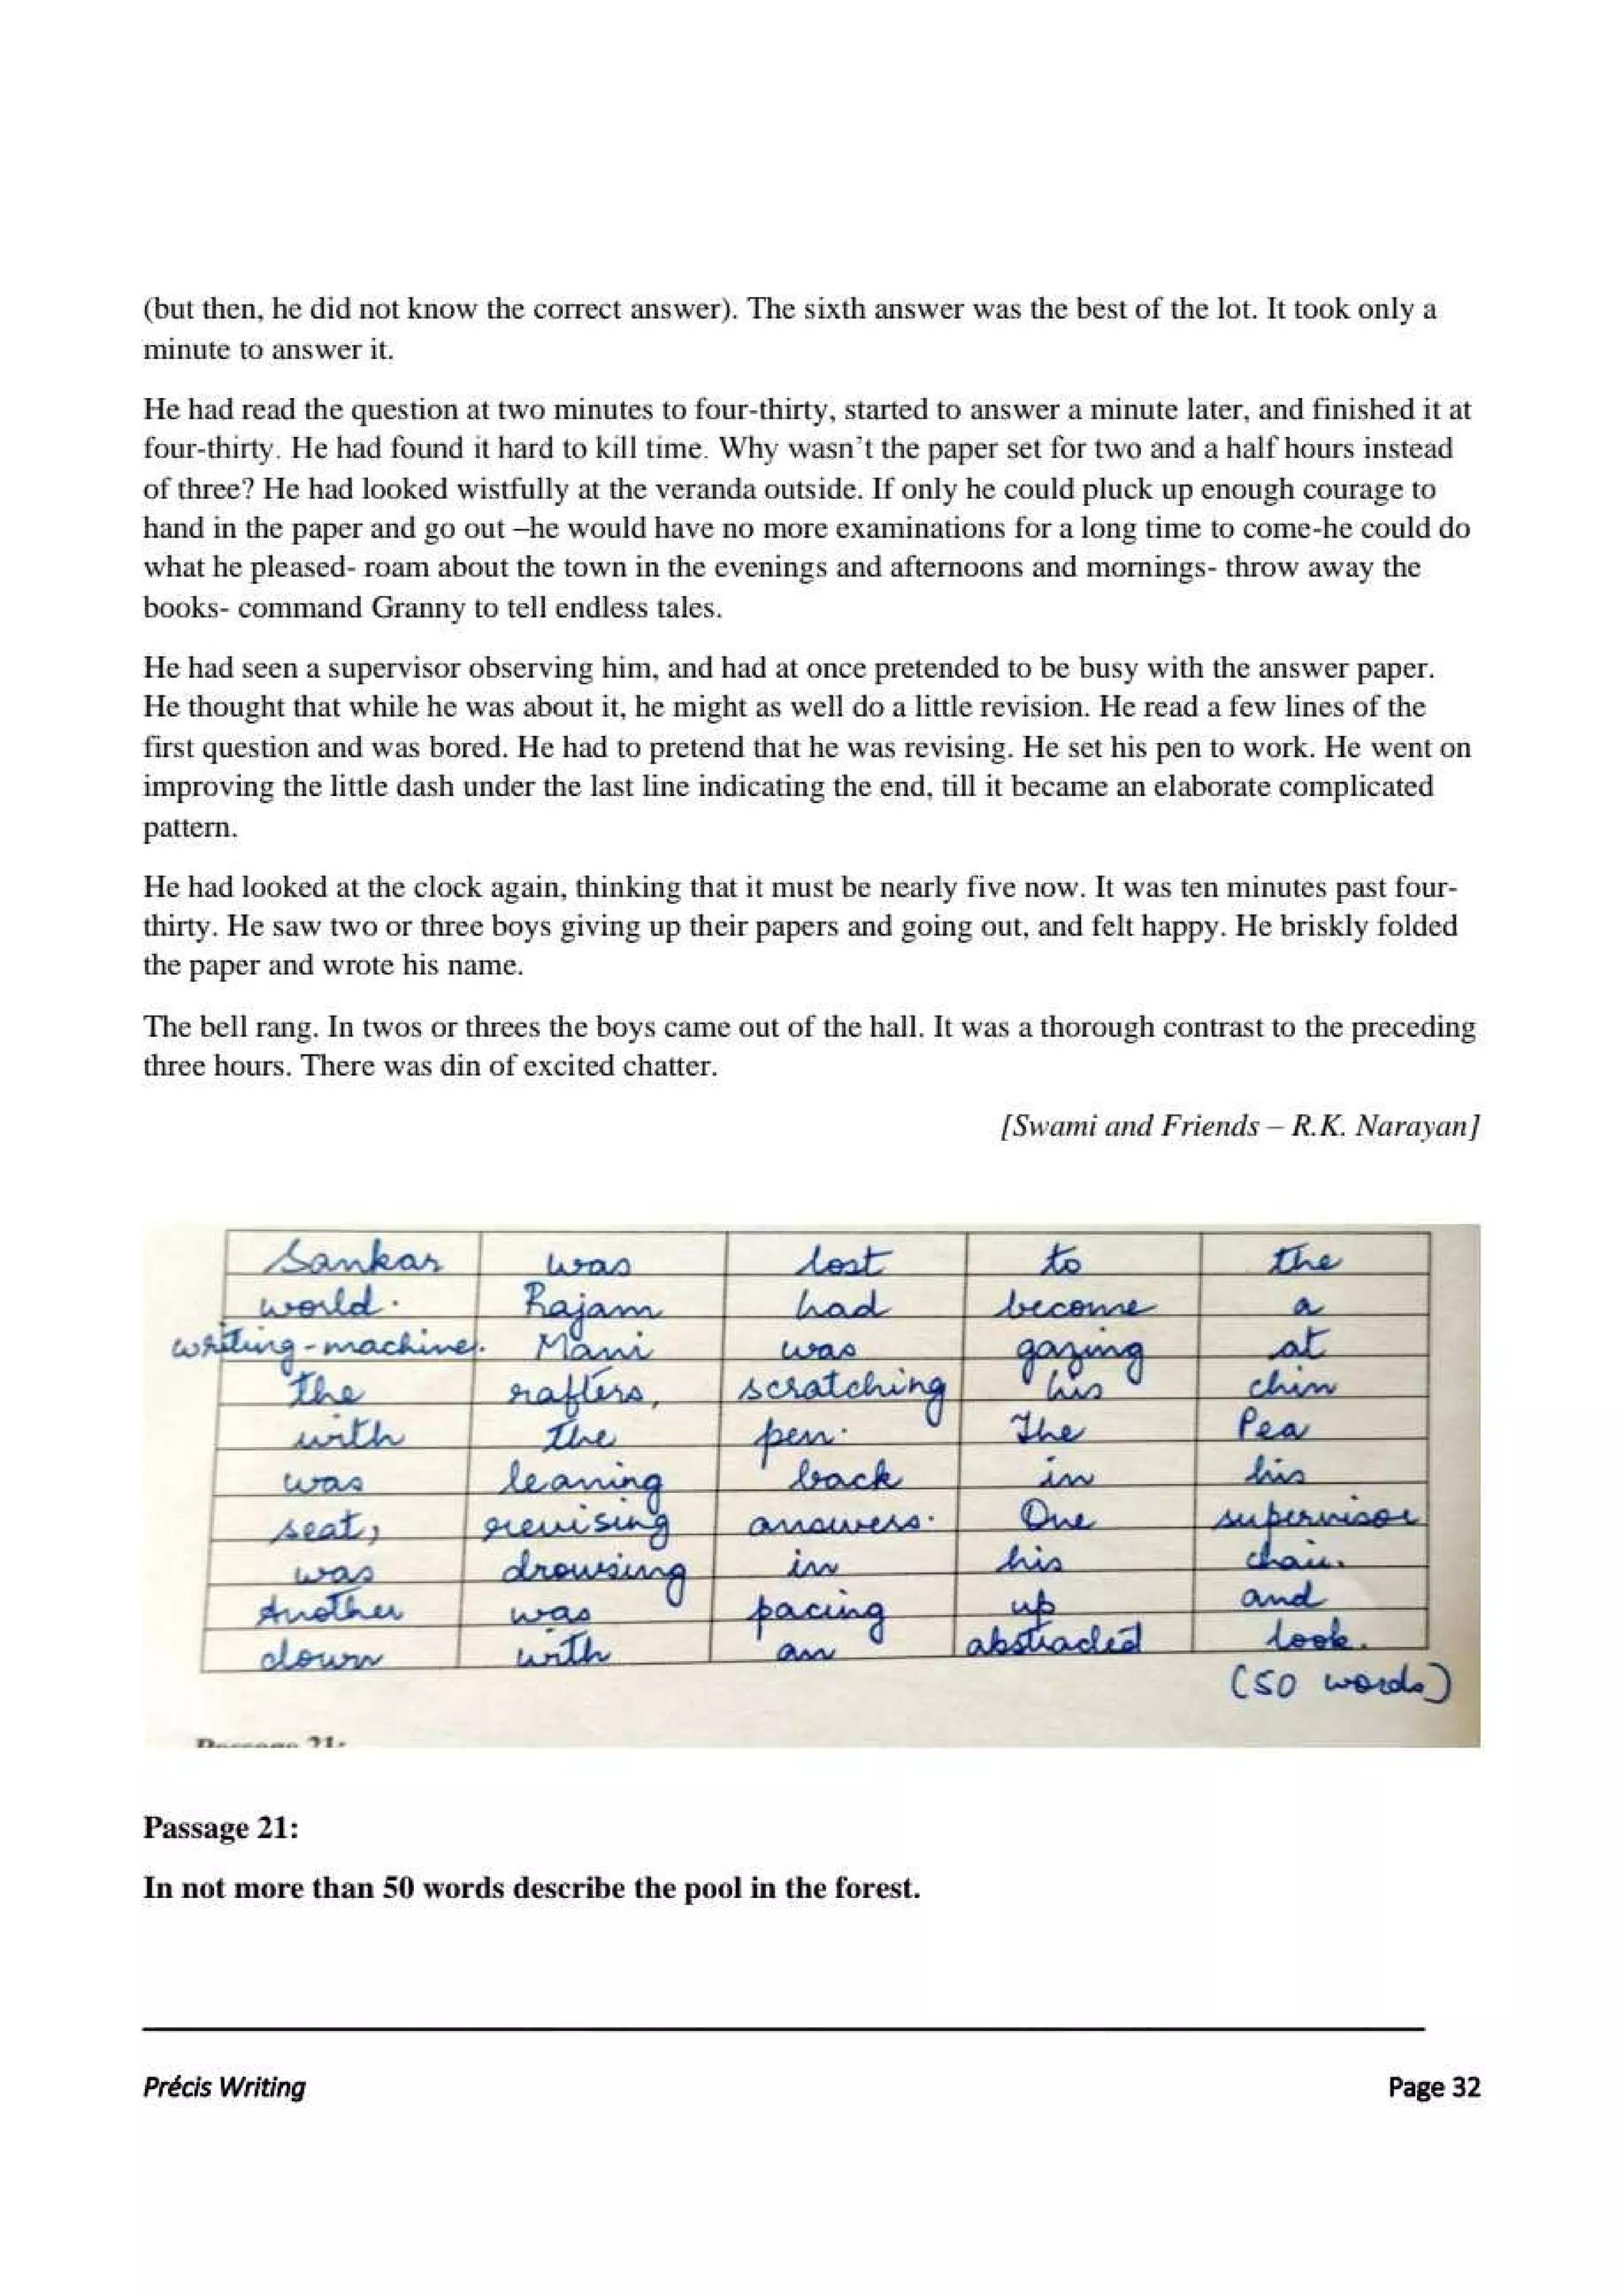 (but then, he did not know the correct answer). The sixth answer was the best of the lot. It took only a
minute to answer it.
He had read the question at two minutes to four-thirty, started to answer a minute later, and finished it at
four-thirty. He had found it hard to kill time. Why wasn't the paper set for two and a half hours instead
of three? He had looked wistfully at the veranda outside. If only he could pluck up enough courage to
hand in the paper and go out –he would have no more examinations for a long time to come-he could do
what he pleased- roam about the town in the evenings and afternoons and mornings- throw away the
books- command Granny to tell endless tales.
He had seen a supervisor observing him, and had at once pretended to be busy with the answer paper.
He thought that while he was about it, he might as well do a little revision. He read a few lines of the
first question and was bored. He had to pretend that he was revising. He set his pen to work. He went on
improving the little dash under the last line indicating the end, till it became an elaborate complicated
pattern.
He had looked at the clock again, thinking that it must be nearly five now. It was ten minutes past four-
thirty. He saw two or three boys giving up their papers and going out, and felt happy. He briskly folded
the paper and wrote his name.
The bell rang. In twos or threes the boys came out of the hall. It was a thorough contrast to the preceding
three hours. There was din of excited chatter.
[Swami and Friends – R.K. Narayan]
Sankar was lost to the
world. Rajam had become a
writing-machine. Mani was gazing at
the rafters, scratching his chin
with the pen. The Pea
was leaning back in his
seat, revising answers. One supervisor
was drowsing in his chair.
Another was pacing up and
down with an abstracted look.
(50 words)
Passage 21:
Passage 21:
In not more than 50 words describe the pool in the forest.
Précis Writing Page 32